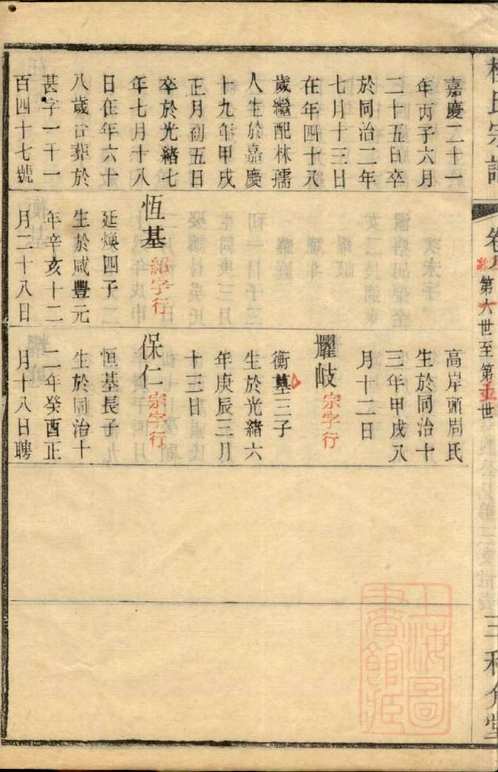 氏宗譜
第六世至第五世
嘉慶二十一
年丙子六月
二十五日卒
於同治二年
七月十三日
在年四十八
歲繼配林孺
人生於嘉慶
十九年甲戌
正月初五日
卒於光緒七
年七月十八
日在年六十
八歲合葬於
甚字一千一
百四十七號
恆基 紹字行
延煥四子
生於咸豐元
年辛亥十二
月二十八日
高岸頭周氏
生於同治十
三年甲戌八
月十二日
耀岐 宗字行
衡墓三子
生於光緒六
年庚辰三月
十三日
保仁 宗字行
恒基長子
生於同治十
二年癸酉正
月十八日聘
上海圖
書館藏